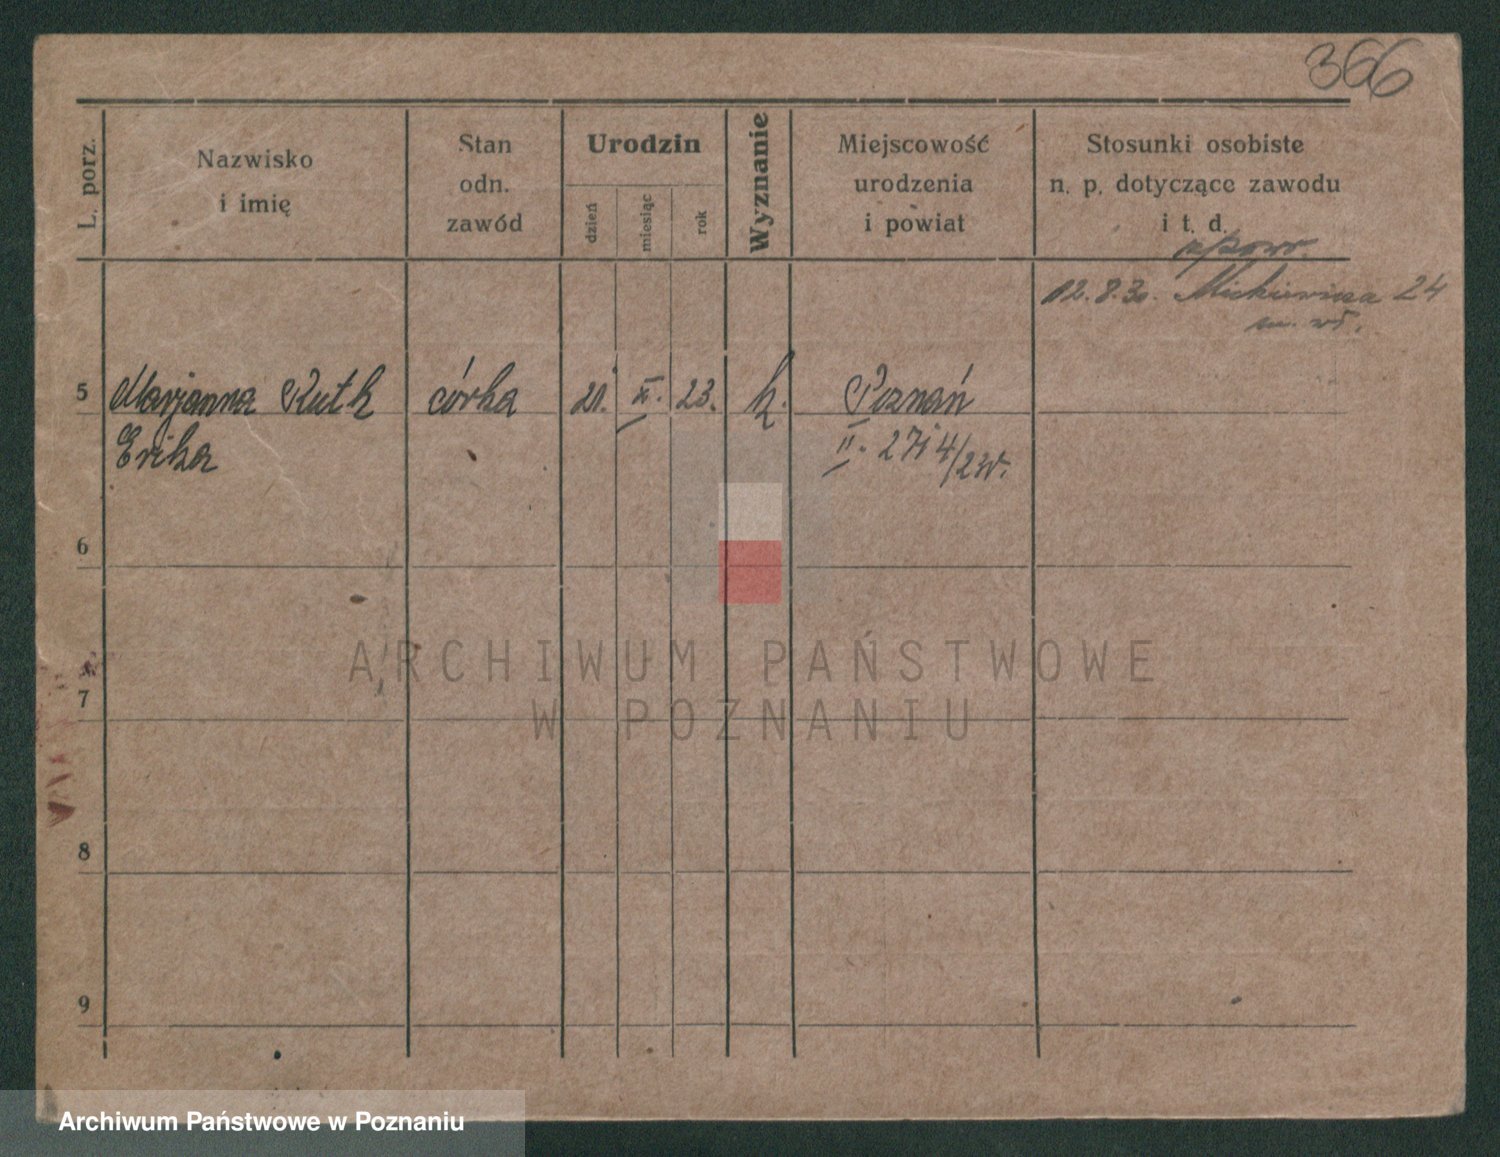 366
L. porz.
Nazwisko
i imię
Stan
odn.
zawód
Urodzin
dzień
miesiąc
rok
Wyznanie
Miejscowość
urodzenia
i powiat
Stosunki osobiste
n. p. dotyczące zawodu
i t. d.
12.8.30. Mickiewicza 24
5 Marjanna Ruth córka 21. II. 23. k. Poznań
Erika II. 27i4/23r.
6
7
8
9
ARCHIWUM PAŃSTWOWE
W POZNANIU
Archiwum Państwowe w Poznaniu